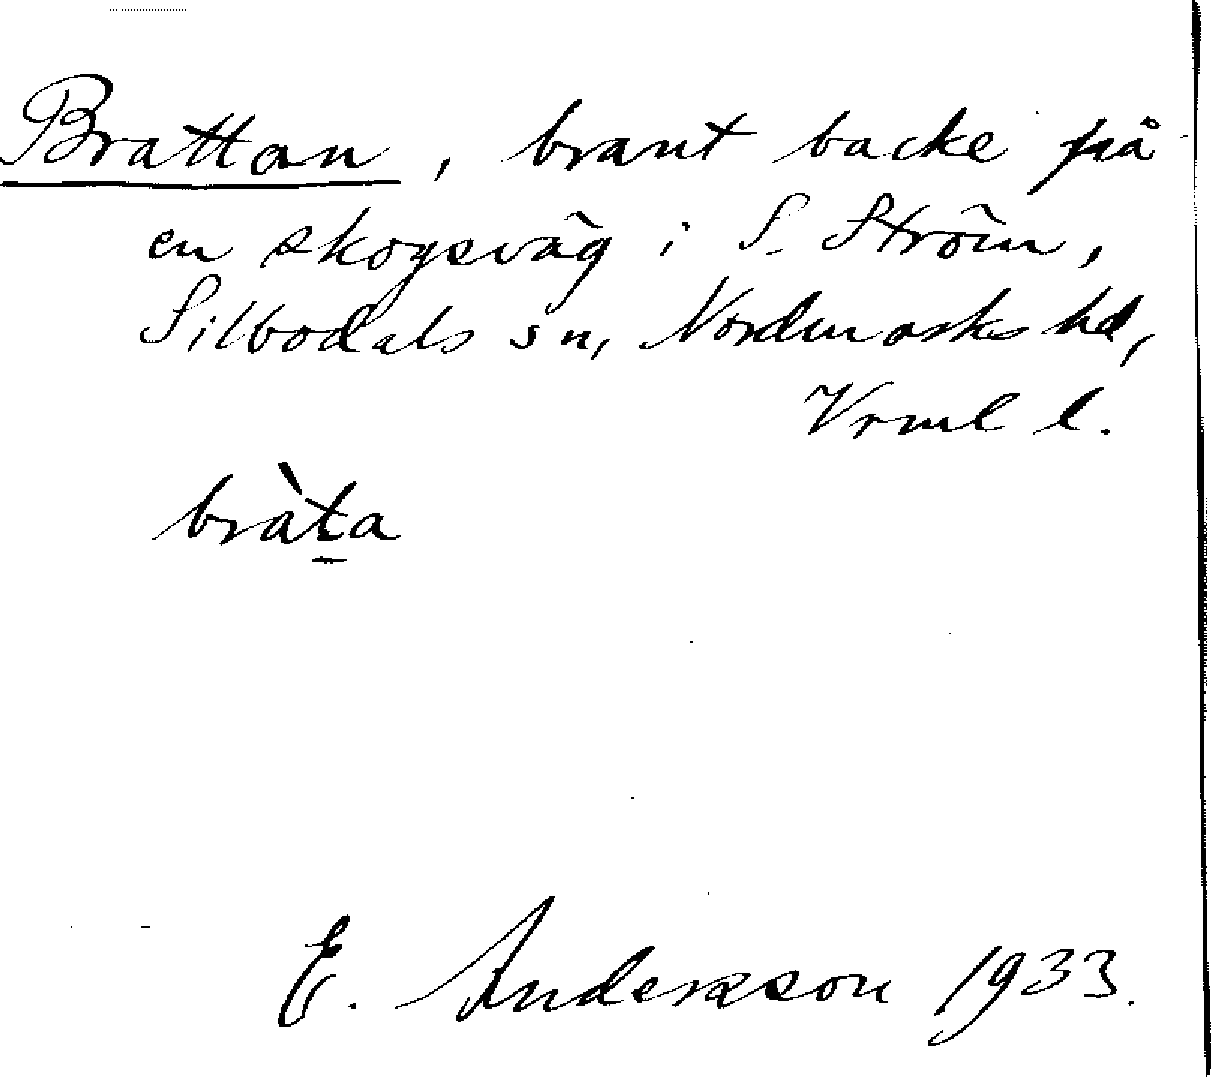 Brattan, brant backe på
en skogsväg i S. Ström,
Silbodals sn, Nordmarks hd,
Vrml l.
bràt̲a
E. Andersson 1933.